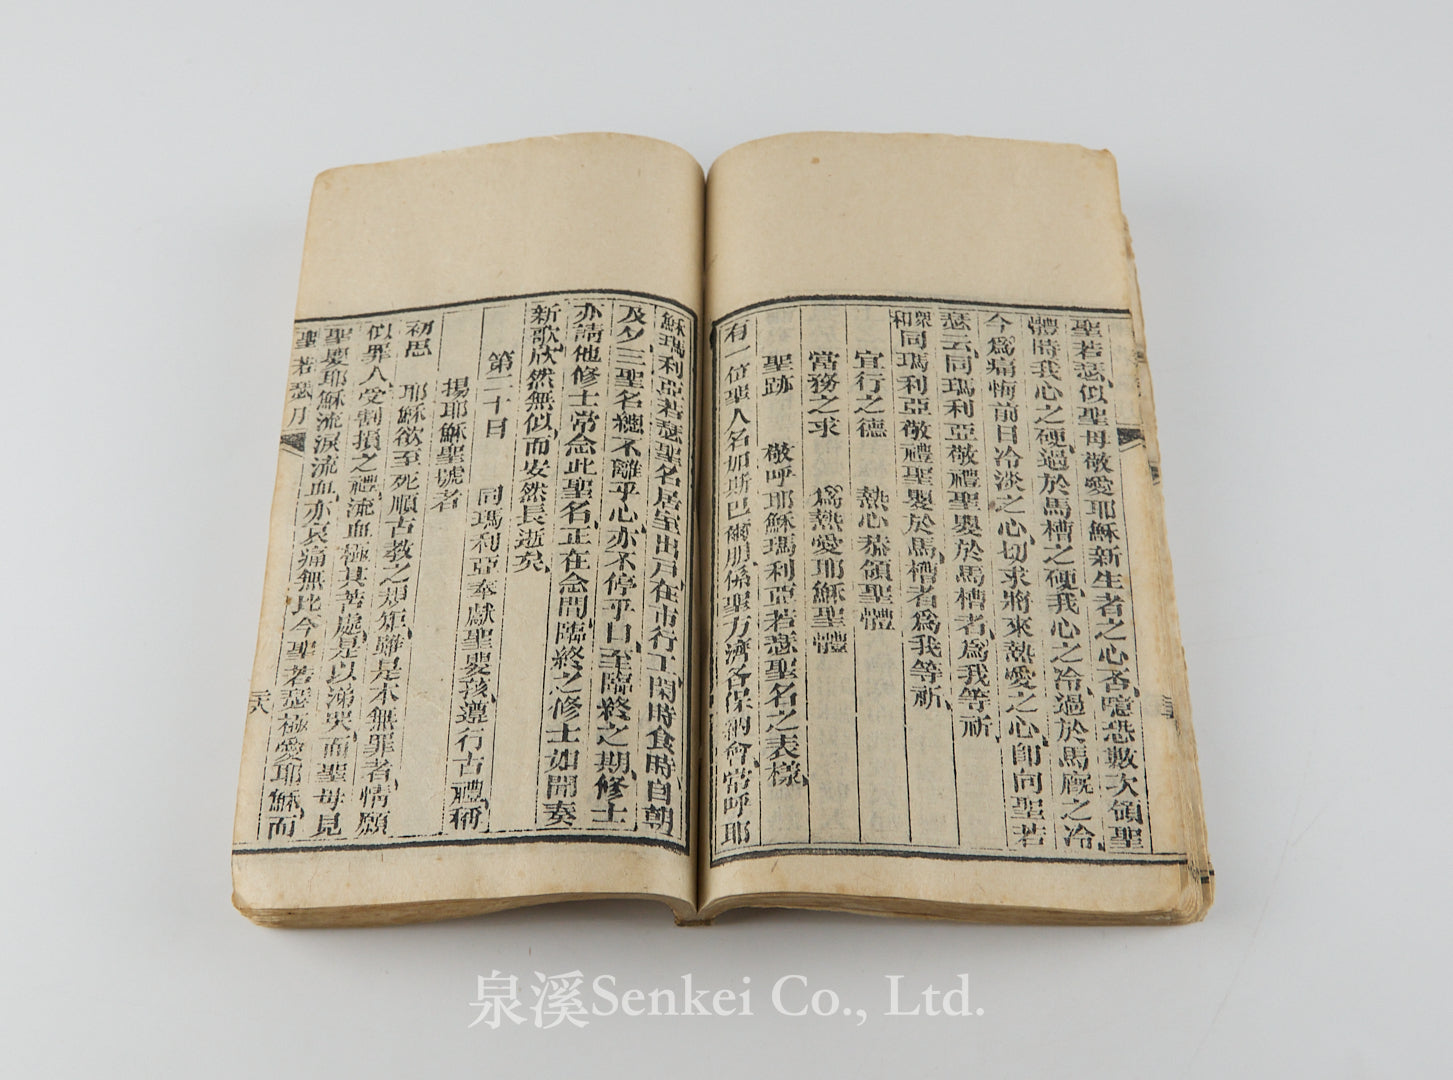 聖若瑟似聖母敬愛耶穌新生者之心否噫恐數次領聖
體時我心之硬過於馬槽之硬我心之冷過於馬廐之冷
今爲痛悔前日冷淡之心切求將來熱愛之心卽向聖若
瑟云同瑪利亞敬禮聖嬰於馬槽者爲我等祈
衆和同瑪利亞敬禮聖嬰於馬槽者爲我等祈
宜行之德 熱心恭領聖體
當務之求 爲熱愛耶穌聖體
聖跡 敬呼耶穌瑪利亞若瑟聖名之表樣
有一位聖人名加斯巴爾朋係聖方濟各保納會常呼耶
穌瑪利亞若瑟聖名居室出戶在市行工閑時食時自朝
及夕三聖名總不離乎心亦不停乎口至臨終之期修士
亦請他修士常念此聖名正在念間臨終之修士如聞奏
新歌欣然無似而安然長逝矣
第二十日 同瑪利亞奉獻聖嬰孩遵行古禮稱
揚耶穌聖號者
初思 耶穌欲至死順古教之規矩雖是本無罪者情願
似罪人受割損之禮流血極其苦處是以涕哭而聖母見
聖嬰耶穌流淚流血亦哀痛無比今聖若瑟極愛耶穌而
聖若瑟月
三六
泉溪Senkei Co., Ltd.